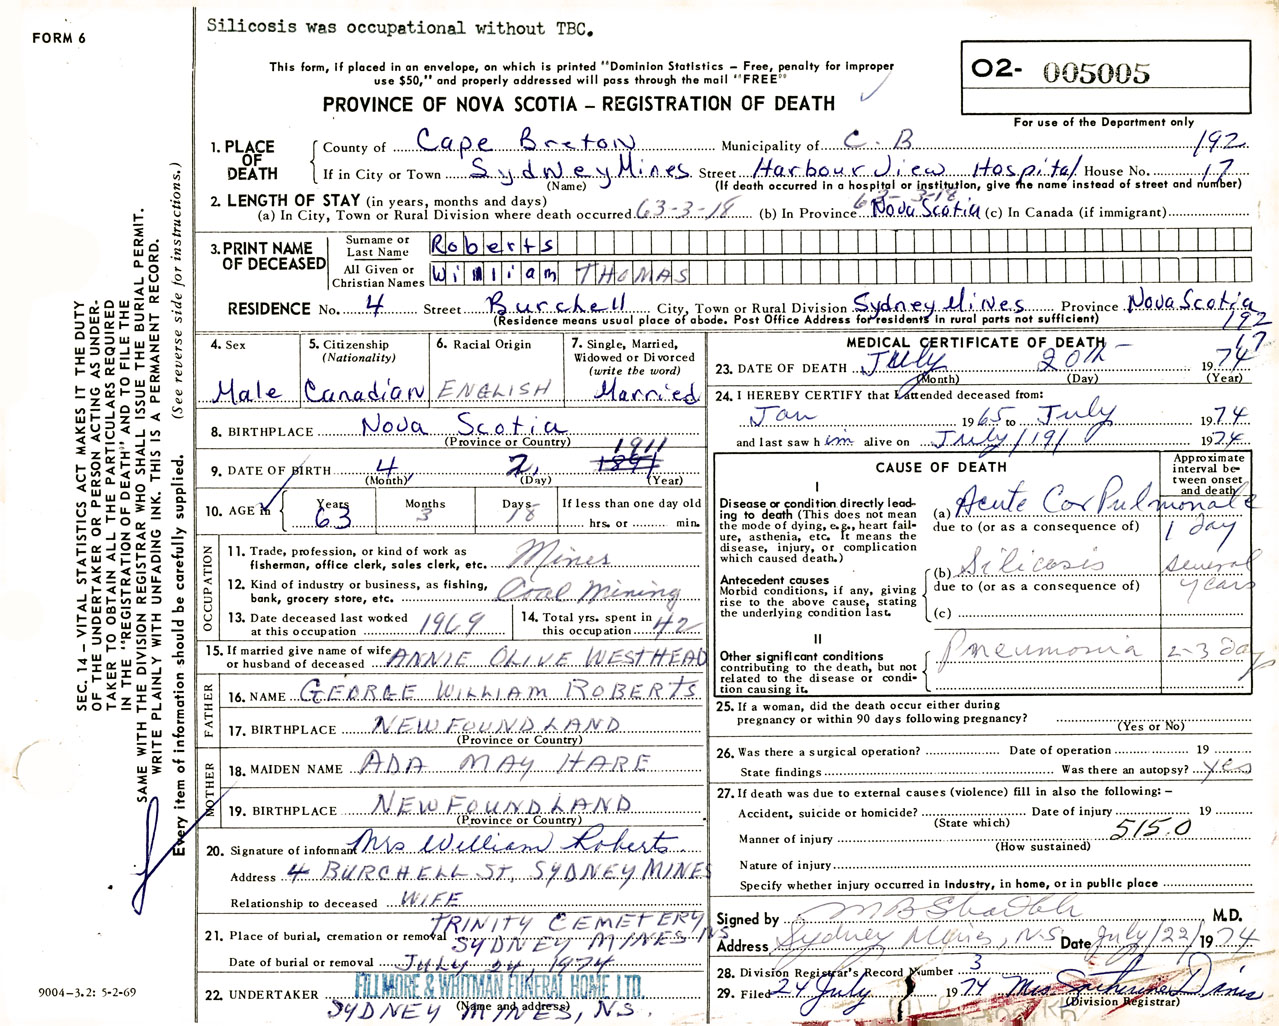 Silicosis was occupational without TBC.
FORM 6
This form, if placed in an envelope, on which is printed "Dominion Statistics – Free, penalty for improper
use $50," and properly addressed will pass through the mail "FREE"
O2- 005005
PROVINCE OF NOVA SCOTIA – REGISTRATION OF DEATH
For use of the Department only
1. PLACE OF DEATH
County of Cape Breton Municipality of C. B 192
If in City or Town Sydney Mines Street Harbour View Hospital House No. 17
(Name) (If death occurred in a hospital or institution, give the name instead of street and number)
2. LENGTH OF STAY (in years, months and days) 63-3-18
(a) In City, Town or Rural Division where death occurred 63-3-18 (b) In Province Nova Scotia (c) In Canada (if immigrant)
3. PRINT NAME OF DECEASED
Surname or Last Name Roberts
All Given or Christian Names William THOMAS
RESIDENCE No. 4 Street Burchell City, Town or Rural Division Sydney Mines Province Nova Scotia
(Residence means usual place of abode. Post Office Address for residents in rural parts not sufficient) 192
17
4. Sex Male
5. Citizenship (Nationality) Canadian
6. Racial Origin ENGLISH
7. Single, Married, Widowed or Divorced (write the word) Married
8. BIRTHPLACE Nova Scotia
(Province or Country)
9. DATE OF BIRTH 4, 2, 1891 1911
(Month) (Day) (Year)
10. AGE in Years 63 Months 3 Days 18 If less than one day old hrs. or min.
OCCUPATION
11. Trade, profession, or kind of work as
fisherman, office clerk, sales clerk, etc. Mines
12. Kind of industry or business, as fishing,
bank, grocery store, etc. Coal Mining
13. Date deceased last worked
at this occupation 1969
14. Total yrs. spent in
this occupation 42
15. If married give name of wife
or husband of deceased ANNIE OLIVE WESTHEAD
FATHER
16. NAME GEORGE WILLIAM ROBERTS
17. BIRTHPLACE NEWFOUNDLAND
(Province or Country)
MOTHER
18. MAIDEN NAME ADA MAY HARE
19. BIRTHPLACE NEWFOUNDLAND
(Province or Country)
20. Signature of informant Mrs William Roberts
Address 4 BURCHELL ST, SYDNEY MINES
Relationship to deceased WIFE
21. Place of burial, cremation or removal TRINITY CEMETERY
SYDNEY MINES NS
Date of burial or removal JULY 24 1974
FILLMORE & WHITMAN FUNERAL HOME LTD.
22. UNDERTAKER SYDNEY MINES, N.S.
(Name and address)
MEDICAL CERTIFICATE OF DEATH
23. DATE OF DEATH July 20th 1974
(Month) (Day) (Year)
24. I HEREBY CERTIFY that I attended deceased from:
Jan 1965 to July 1974
and last saw him alive on July/19/ 1974
CAUSE OF DEATH
Approximate interval between onset and death
I
Disease or condition directly lead-
ing to death (This does not mean
the mode of dying, e.g., heart fail-
ure, asthenia, etc. It means the
disease, injury, or complication
which caused death.)
(a) Acute Cor Pulmonale
due to (or as a consequence of) 1 day
Antecedent causes
Morbid conditions, if any, giving
rise to the above cause, stating
the underlying condition last.
(b) Silicosis several years
due to (or as a consequence of)
(c)
II
Other significant conditions
contributing to the death, but not
related to the disease or condi-
tion causing it.
Pneumonia 2-3 day
25. If a woman, did the death occur either during
pregnancy or within 90 days following pregnancy?
(Yes or No)
26. Was there a surgical operation? Date of operation 19
State findings Was there an autopsy? yes
27. If death was due to external causes (violence) fill in also the following: –
Accident, suicide or homicide? Date of injury 19
(State which)
Manner of injury 515.0
(How sustained)
Nature of injury
Specify whether injury occurred in industry, in home, or in public place
Signed by M.D.
Address Sydney Mines, N.S. Date July/22/ 1974
28. Division Registrar's Record Number 3
29. Filed 24 July 1974 Mrs Davis
(Division Registrar)
SEC. 14 – VITAL STATISTICS ACT MAKES IT THE DUTY
OF THE UNDERTAKER OR PERSON ACTING AS UNDER-
TAKER TO OBTAIN ALL THE PARTICULARS REQUIRED
IN THE "REGISTRATION OF DEATH" AND TO FILE THE
SAME WITH THE DIVISION REGISTRAR WHO SHALL ISSUE THE BURIAL PERMIT.
WRITE PLAINLY WITH UNFADING INK. THIS IS A PERMANENT RECORD.
Every item of information should be carefully supplied. (See reverse side for instructions.)
9004-3.2: 5-2-69